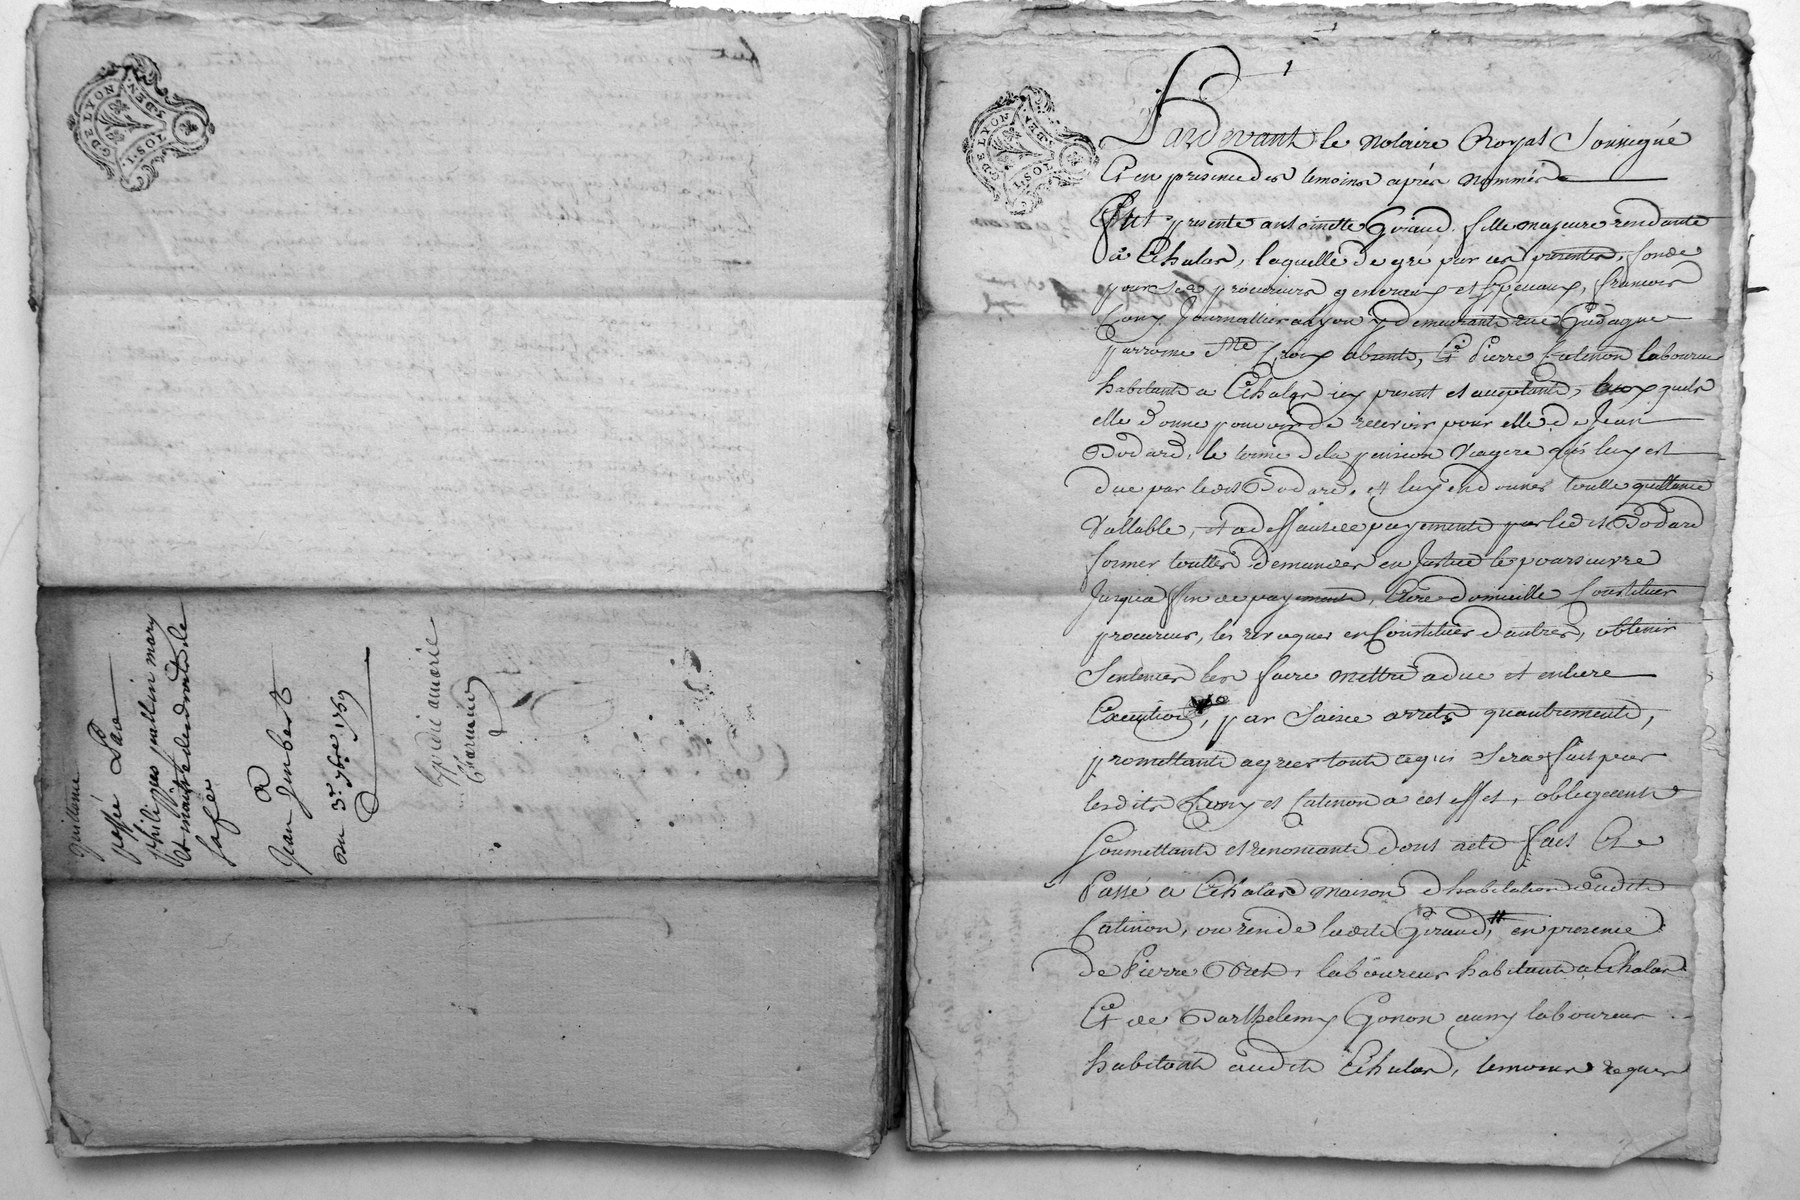 G DE LYON
10 S. L
DEN
2
Quittance
passé Par
philippes guallin mary
Et maitre des droits de
sa fe
a
Jean Jmbert
du 3e. 7bre. 1769
Expedié au
G DE LYON
1 SOL
DEN
1
Pardevant le Notaire Royal Soussigné
Et en presence des temoins aprés Nommés
Fut presente antoinette Giraud fille majeure rendante
a Echalas, laquelle de gré par ces presentes, fonde
pour Ses procureurs generaux et Speciaux, francois
Cony Journallier a Lyon y demeurant rue Gadagne
parroisse Ste. Croix absent, Et Pierre Catinon laboureur
habitant a Echalas icy present et aceptant, auxquels
elle donne pouvoir de recevoir pour elle de Jean
Bodard, le terme de la pension Viagere qui luy est
due par ledit Bodard, et luy en donner toutte quittance
Vallable, et a deffaut de payement par ledit Bodard
former touttes demandes en Justice le poursuivre
Jusqua fin de payement, Elire domicille Constituer
procureur, les revoquer en Constituer dautres, obtenir
Sentences les faire mettre a due et entiere
Execution, par Saisie arrets quautrement,
promettant agreer tout ce qui Sera fait par
lesdits Cony et Catinon a cet effet, obligeant
Soumettant et renoncant dont acte fait Et
Passé a Echalas maison d'habitation dudit
Catinon, ou reside ladite Giraud, en presence
de Pierre laboureur habitant a Echalas
Et de Barthelemy Gonon aussy laboureur
habitant audit Echalas, temoins requis